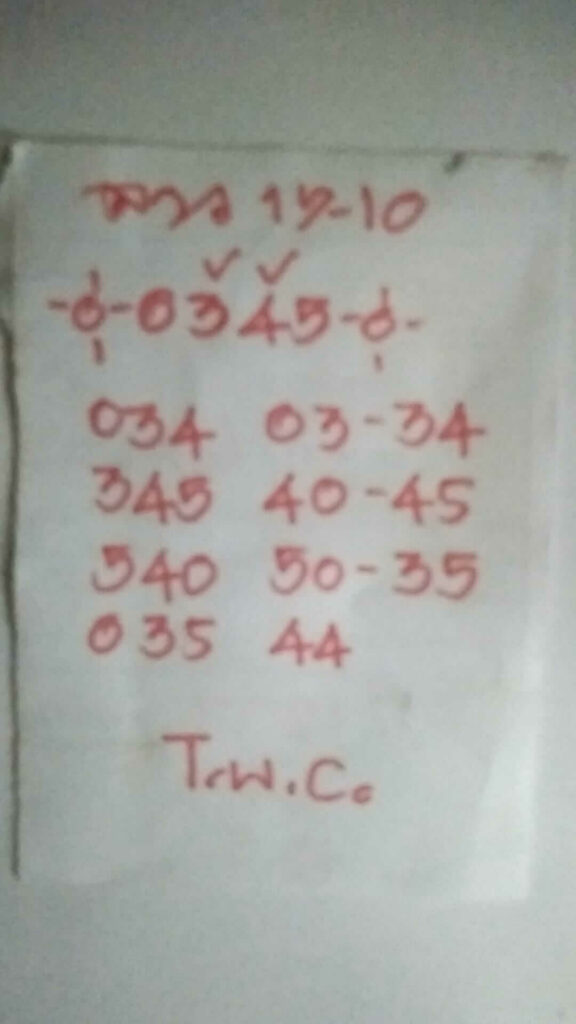 ลาว 15-10
✓ ✓
-0-0345-0-
034 03-34
345 40-45
540 50-35
035 44
T.W.C.